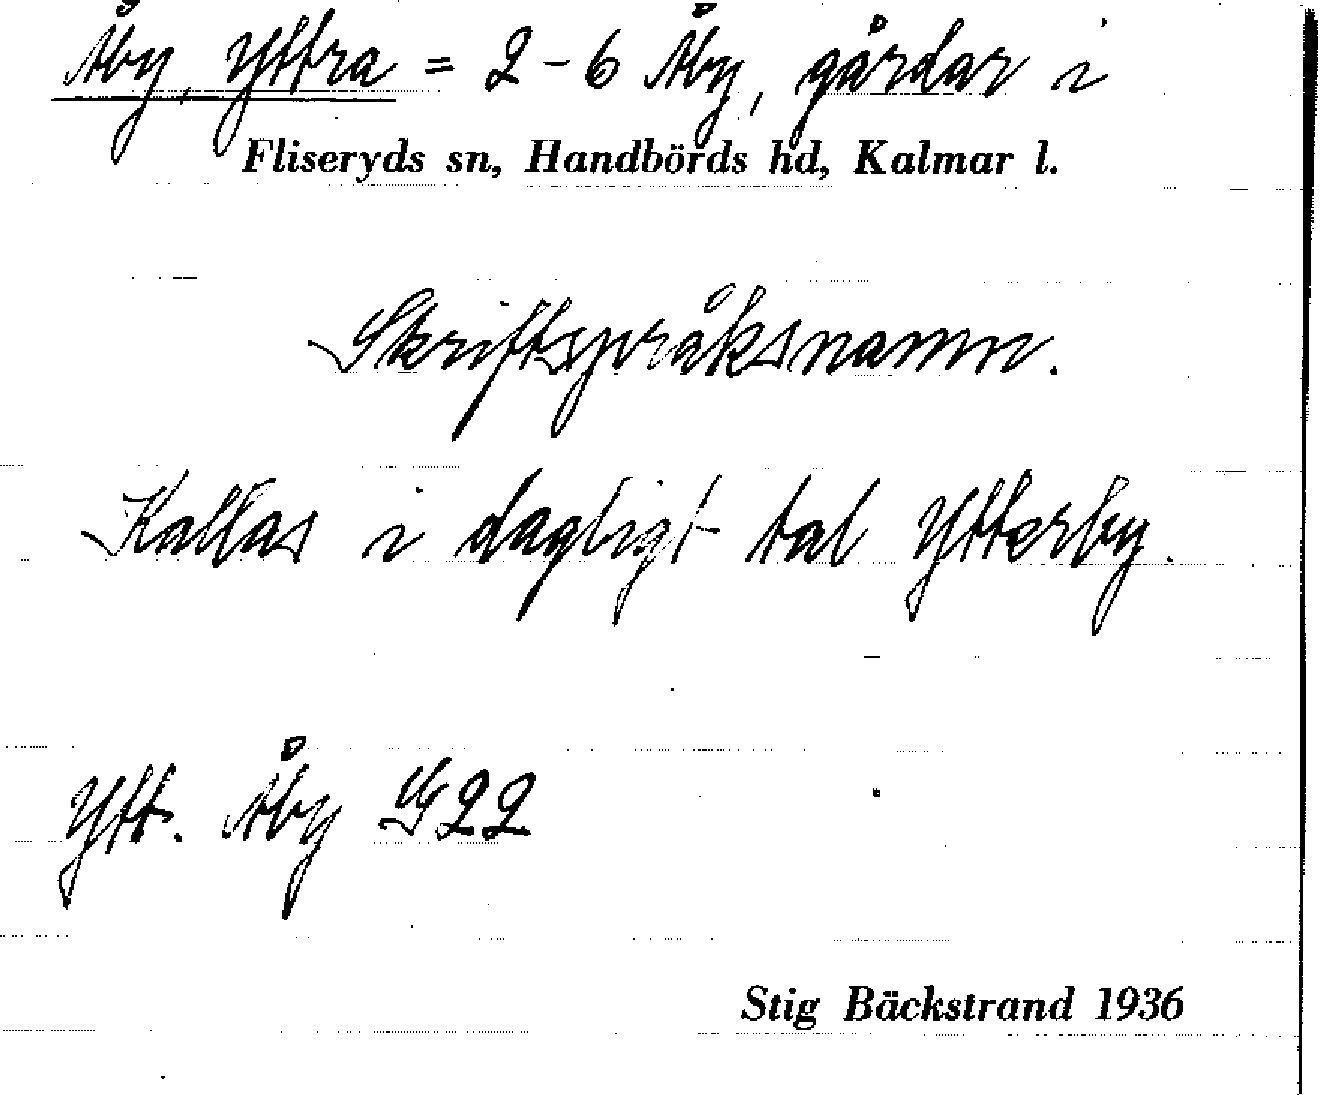 Åby, Yttra = 2-6 Åby, gårdar i
Fliseryds sn, Handbörds hd, Kalmar l.
Skriftspråksnamn.
Kallas i dagligt tal Ytterby.
Ytt. Åby G22
Stig Bäckstrand 1936